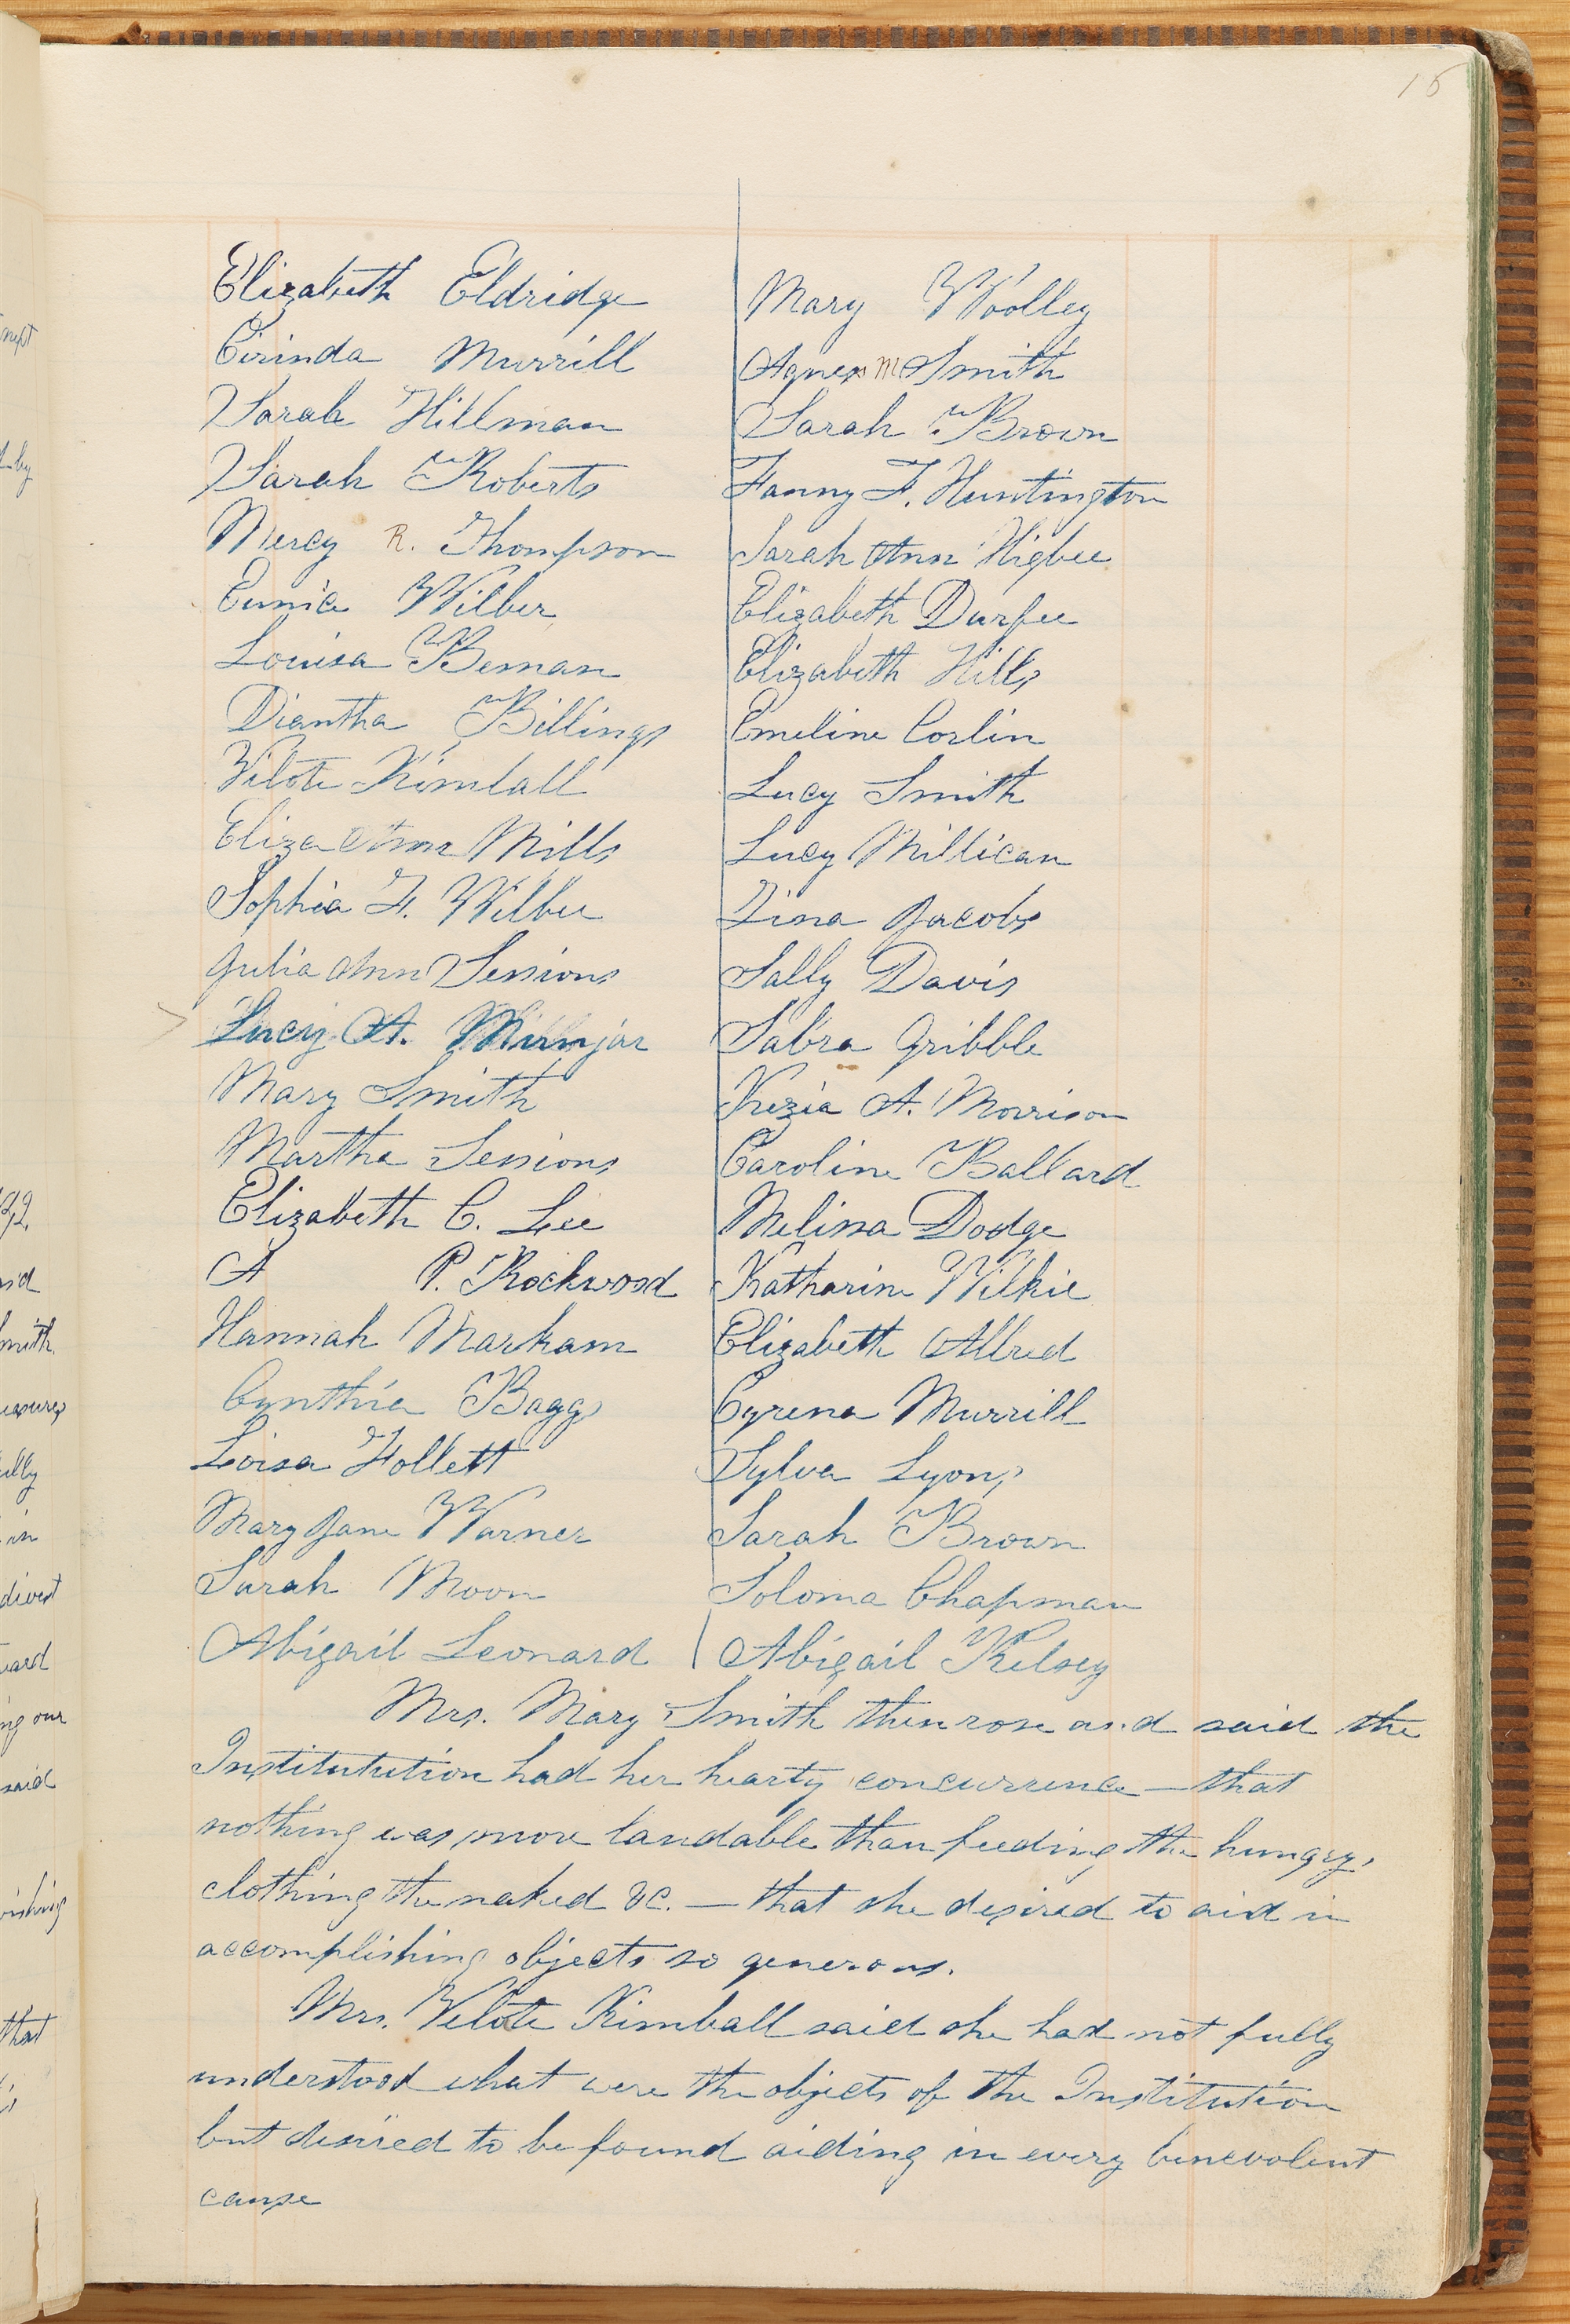 15
Elizabeth Eldridge
Cirinda Murrill
Sarah Hillman
Sarah Roberts
Mercy R. Thompson
Eunice Wilber
Louisa Beman
Diantha Billings
Vilote Kimball
Eliza Ann Mills
Sophia F. Wilber
Julia Ann Sessions
Lucy A.
Mary Smith
Martha Sessions
Elizabeth C. Lee
A P. Rockwood
Hannah Markam
Cynthia Baggs
Loisa Follett
Mary Jane Warner
Sarah Moon
Abigail Leonard
Mary Woolley
Agnes M Smith
Sarah Brown
Fanny F. Huntington
Sarah Ann Higbee
Elizabeth Durfee
Elizabeth Hills
Emeline Corlin
Lucy Smith
Lucy Millican
Zina Jacobs
Sally Davis
Sabra Gribble
Kezia A. Morrison
Caroline Ballard
Melissa Dodge
Katharine Wilkie
Elizabeth Allred
Cyrena Murrill
Sylva Lyons
Sarah Brown
Soloma Chapman
Abigail Kelsey
Mrs. Mary Smith then rose and said the
Institutution had her hearty concurrence — that
nothing was more laudable than feeding the hungry,
clothing the naked &c. — that she desired to aid in
accomplishing objects so generous.
Mrs. Velote Kimball said she had not fully
understood what were the objects of the Institution
but desired to be found aiding in every benevolent
cause